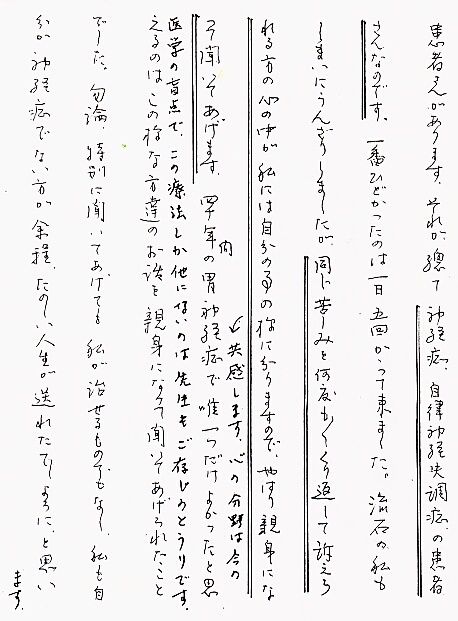 患者さんがあります。それが、總て神経症、自律神経失調症の患者
さんなのです。一番ひどかったのは一日五回かかって来ました。流石の私も
しまいにうんざりしましたが、同じ苦しみを何度もくり返して訴えら
れる方の心の中が私には自分の事の様に分りますので、やはり親身にな
って聞いてあげます。四十年の間胃神経症で唯一つだけよかったと思
↙共感します。心の分野は今の
医学の盲点で、この療法しか他にないのは先生もご存じのとうりです。
えるのはこの様な方達のお話を親身になって聞いてあげられたこと
でした。勿論、特別に聞いてあげても私が治せるものでもなし、私も自
分が神経症でない方が余程、たのしい人生が送れたでしょうに、と思い
ます。